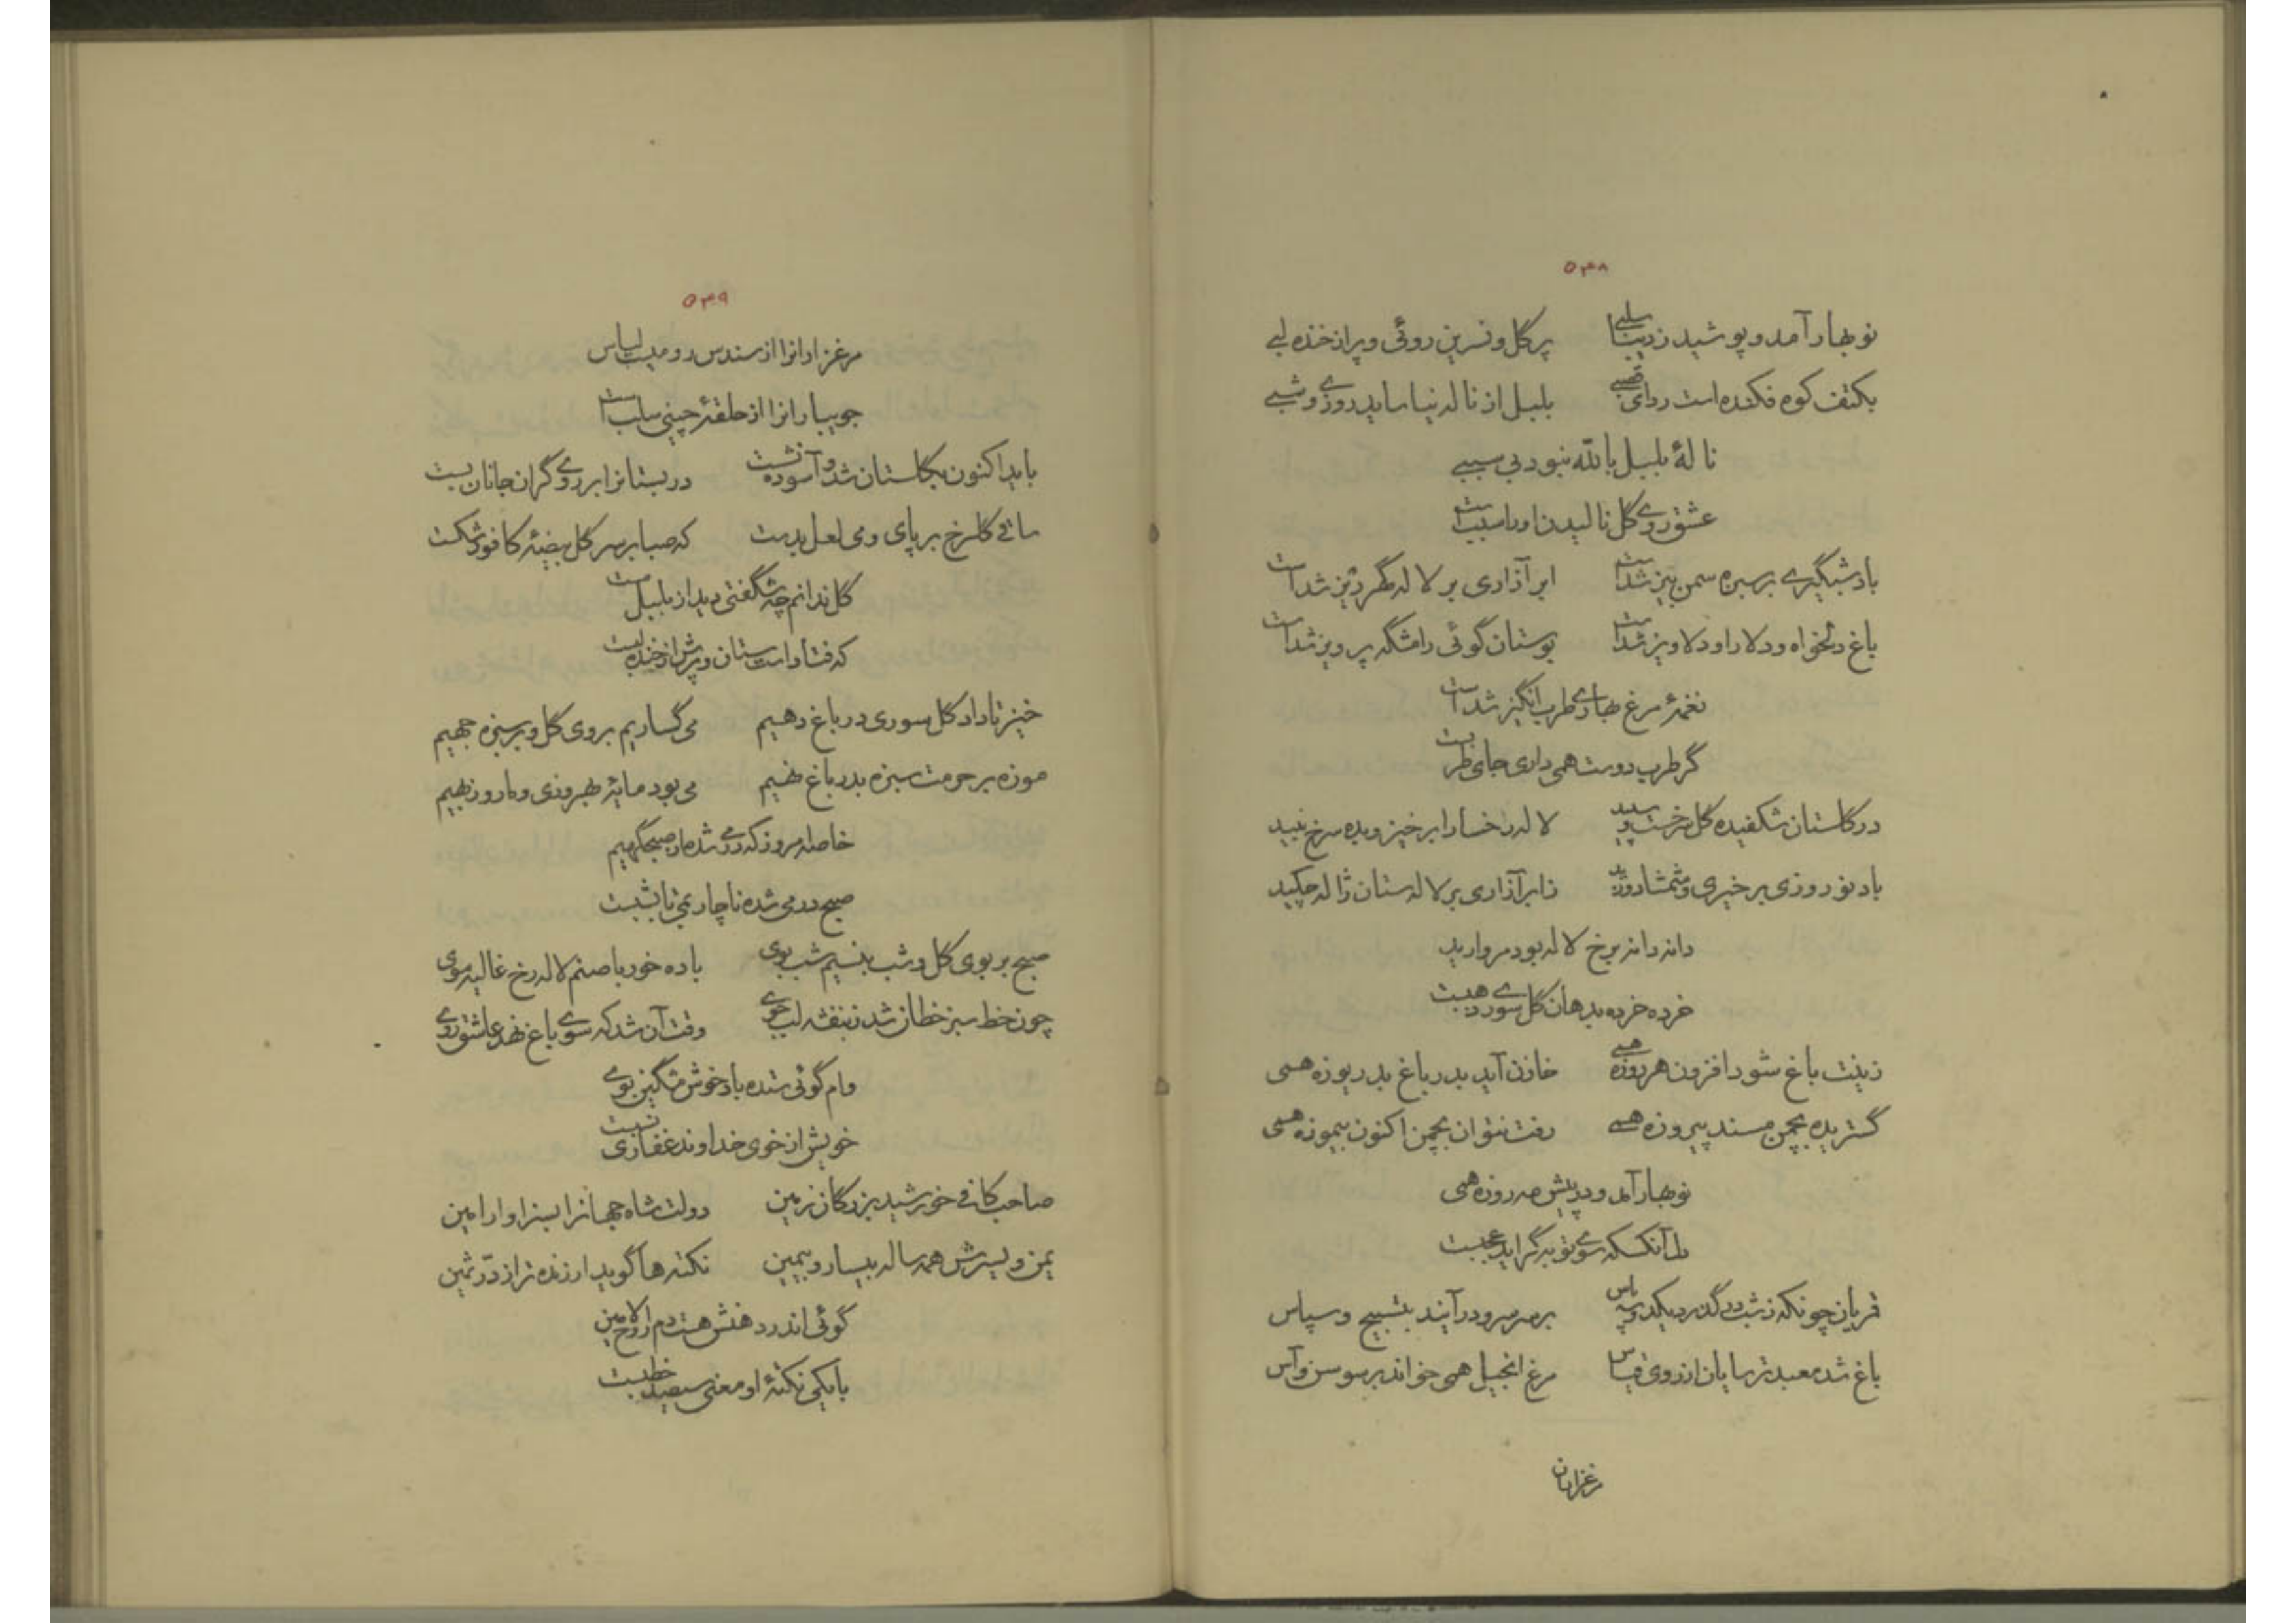 ۵۴۸
نوبهار آمد و پوشید ز دیبا سلبی پر گل و نسرین روئی و پر از خنده لبی
بکتف کوه فکنده است ردای قصبی بلبل از ناله نیاساید روزی و شبی
نالهٔ بلبل بالله نبود بی سببی
عشق روی گل نالیدن او را سببست
باد شبگیری بر سبزه سمن بیز شداست ابر آذاری بر لاله گهر ریز شداست
باغ دلخواه و دلارا و دلاویز شداست بوستان گوئی رامشگه پرویز شداست
نغمهٔ مرغ بهاری طرب انگیز شداست
گر طرب دوست همی داری جای طربست
در گلستان شکفیده گل سرخست و سپید لاله رخسارا برخیز و بده سرخ نبید
باد نوروزی بر خیری و شمشاد وزید ز ابر آذاری بر لاله ستان ژاله چکید
دانه دانه برخ لاله بود مروارید
خرده خرده بدهان گل سوری ذهبست
زینت باغ شود افزون هر روزه همی خازن آید بدر باغ بدریوزه همی
گستریده بچمن مسند پیروزه همی رفت نتوان بچمن اکنون بیموزه همی
نوبهار آمد و در پیش مه روزه همی
دل آنکسکه سوی توبه گراید عجبست
قمریان چونکه ز شب درگذرد یکدو سه پاس بر سر سرو در آیند بتسبیح و سپاس
باغ شد معبد ترسایان از روی قیاس مرغ انجیل همی خواند بر سوسن و آس
مرغزاران
۵۴۹
مرغزارانرا از سندس رومیست لباس
جویبارانرا از حلقهٔ چینی سلب است
باید اکنون بگلستان شد و آسوده نشست در بستانرا بر روی گران جانان بست
ساقی گلرخ بر پای و می لعل بدست که صبا بر سر گل بیضهٔ کافور شکست
گل ندانم چه شگفتی دید از بلبل مست
که فتاد است ستان و پرش از خنده لبست
خیز تا داد گل سوری در باغ دهیم می گساریم بروی گل و بر سبزه جهیم
موزه بر حرمت سبزه بدر باغ نهیم می بود مایهٔ بهروزی و ما روزبهیم
خاصه امروز که در می شده از صبحگهیم
صبح در می شده ناچار همی تا بشبست
صبح بر بوی گل و شب بنسیم شب بوی باده خور با صنم لاله رخ غالیه موی
چون خط سبز خطان شد ز بنفشه لب جوی وقت آن شد که سوی باغ نهد عاشق روی
وام گوئی ستده باد خوش مشگین بوی
خویش از خوی خداوند غفاری نسبت
صاحب کافی خورشید بزرگان زمین دولت شاه جهانرا بسزاوار امین
یمن و یسرش همه ساله بیسار و بیمین نکته ها گوید ارزنده تر از درّ ثمین
گوئی اندر دهنش هست دم روح الامین
با یکی نکتهٔ او معنی سیصد خطبست